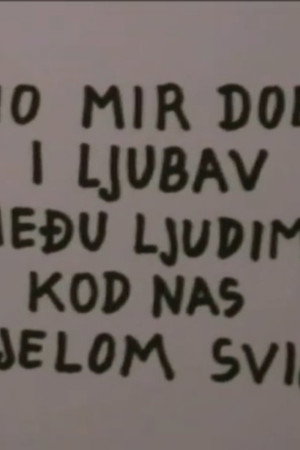 MIR DO
I LJUBAV
EĐU LJUDIM
KOD NAS
JELOM SVI